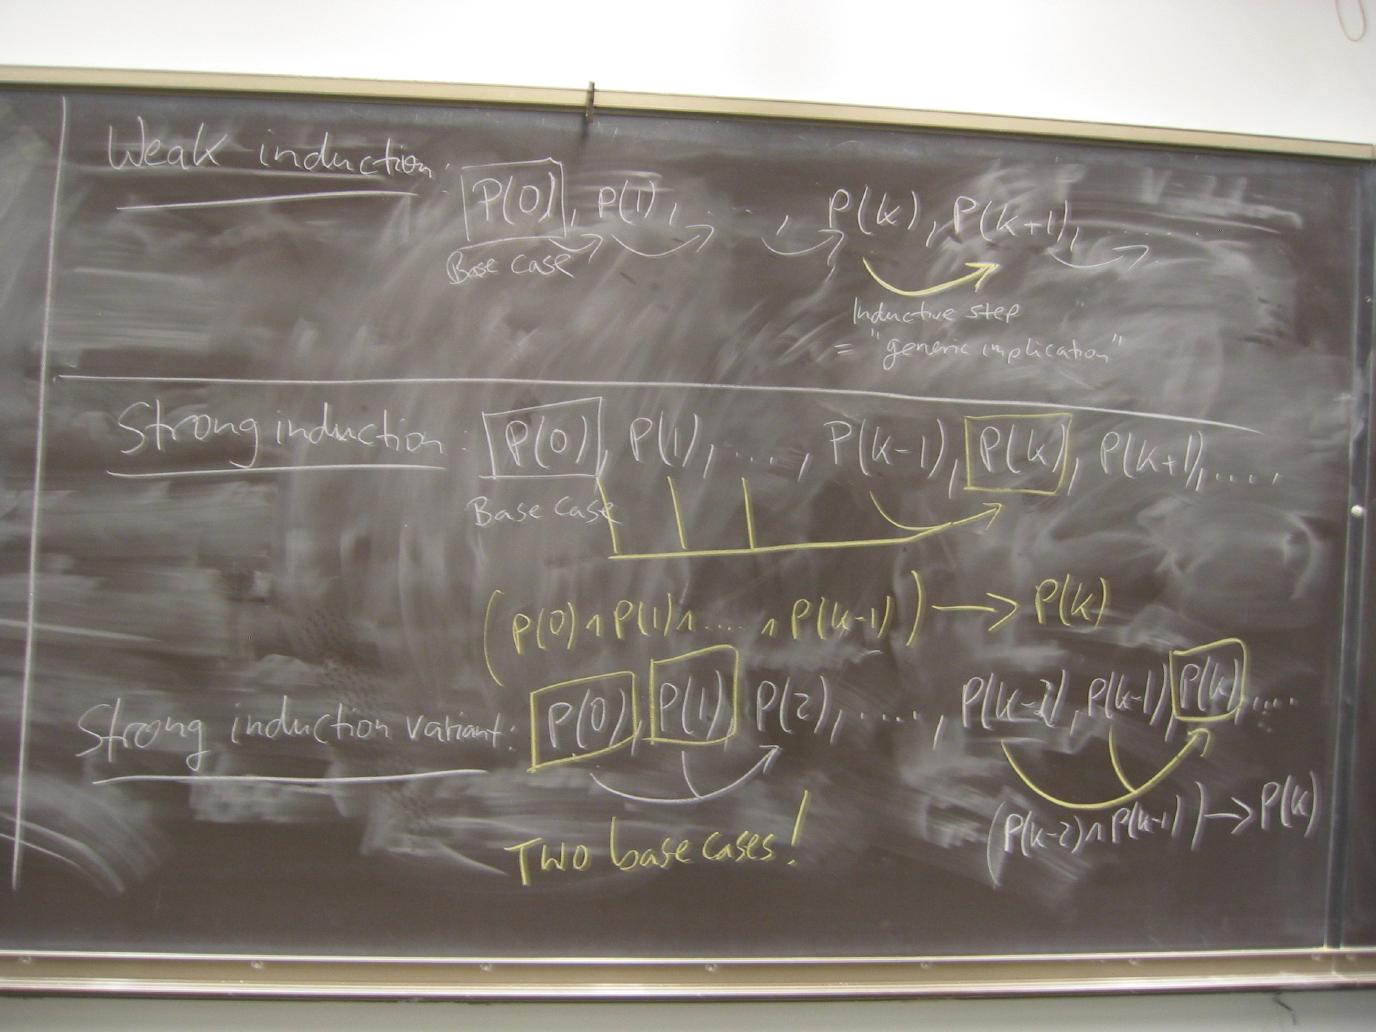 Weak induction: P(0), P(1), ...., P(k), P(k+1), .....
Base case
Inductive step
= "generic implication"
Strong induction: P(0), P(1), ...., P(k-1), P(k), P(k+1), ....
Base case
(P(0) ∧ P(1) ∧ .... ∧ P(k-1)) → P(k)
Strong induction variant: P(0), P(1), P(2), ....., P(k-2), P(k-1), P(k), ....
Two base cases!
(P(k-2) ∧ P(k-1)) → P(k)